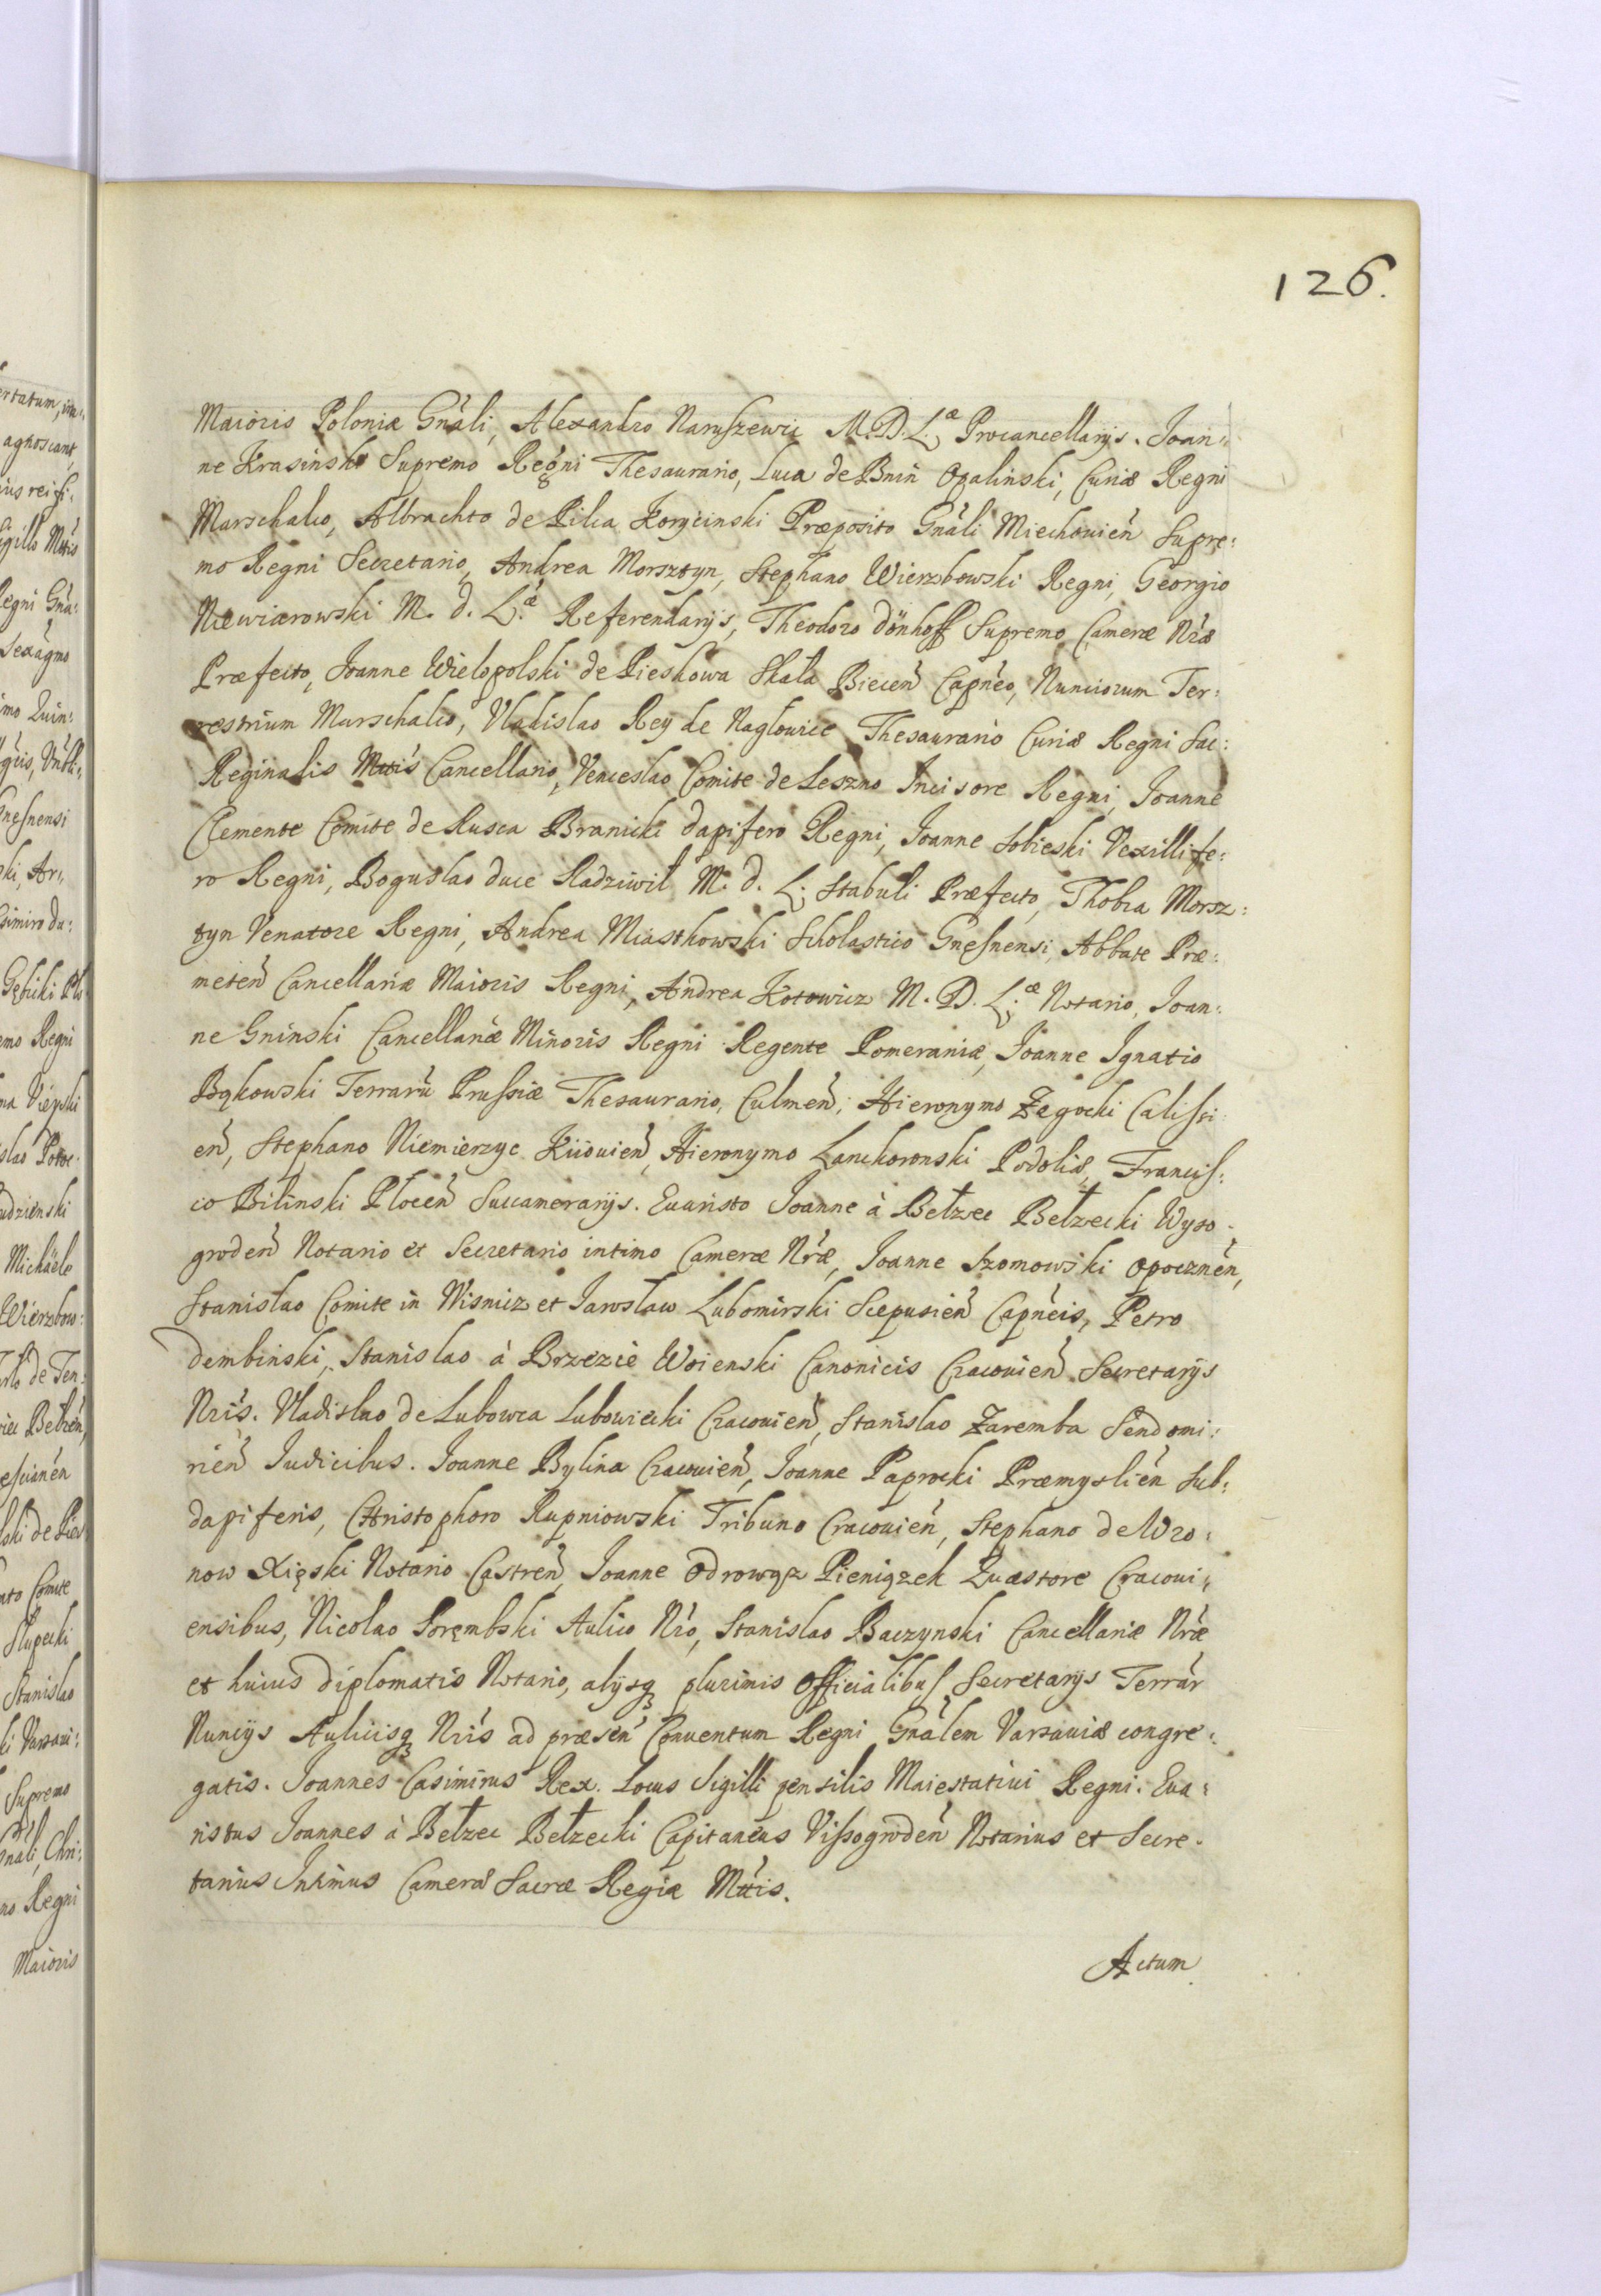 126.
Maioris Poloniæ Gnãli, Alexandro Naruszewic M.D.L.æ Procancellarijs. Joan:
ne Krasinski Supremo Regni Thesaurario, Luca de Bnin Opaliński, Curiæ Regni
Marschalco, Albrachto de Pilca Korycinski Præposito Gnãli Miechouień Supre:
mo Regni Secretario, Andrea Morsztyn, Stephano Wierzbowski Regni, Georgio
Niewiarowski M. d. L.æ Referendarijs, Theodoro Dönhoff Supremo Cameræ Nræ
Præfecto, Joanne Wielopolski de Pieskowa Skała Biecen Capneo, Nunciorum Ter:
restrium Marschalco, Vladislao Rey de Naglowice Thesaurario Curiæ Regni Sac:
Reginalis Mttis Cancellario, Venceslao Comite de Leszno Incisore Regni, Joanne
Clemente Comite de Rusca Branicki dapifero Regni, Joanne Sobieski Vexillife:
ro Regni, Boguslao duce Radziwił M. d. L. Stabuli Præfecto, Thobia Morsz:
tyn Venatore Regni, Andrea Miaskowski Scholastico Gnesnensi, Abbate Præ:
meten Cancellariæ Maioris Regni, Andrea Kotowicz M. D. L.æ Notario, Joan:
ne Gninski Cancellariæ Minoris Regni Regente Pomeraniæ, Joanne Ignatio
Bąkowski Terrarũ Prussiæ Thesaurario, Culmen, Hieronymo Zegocki Calissi:
en, Stephano Niemierzyc Kiiouien, Hieronymo Lanckoronski Podoliæ, Francis:
co Bilinski Plocen Succamerarijs. Euaristo Joanne à Bełzec Bełzecki Wyso:
groden Notario et Secretario intimo Cameræ Nræ, Joanne Szomowski Opocznen,
Stanislao Comite in Wisnicz et Jaroslaw Lubomirski Scepusien Capneis, Petro
dembiński, Stanislao à Brzezie Woienski Canonicis Cracouien Secretarijs
Nris. Vladislao de Lubowca Lubowiecki Cracouien, Stanislao Zaremba Sendomi:
rien Judicibus. Joanne Bylina Cracouien, Joanne Paprocki Præmyslien Sub:
dapiferis, Christophoro Rupniowski Tribuno Cracouien, Stephano de Wro:
now Xięski Notario Castren, Joanne Odrowąz Pieniązek Quæstore Cracoui:
ensibus, Nicolao Porembski Aulico Nro, Stanislao Baczynski Cancellariæ Nræ
et huius diplomatis Notario, alijsq plurimis Officialibus Secretarijs Terrar
Nuncijs Aulicisq Nris ad præsen Conuentum Regni Gnãlem Varsauiæ congre:
gatis. Joannes Casimirus Rex. Locus Sigilli pensilis Maiestatiui Regni. Eua:
ristus Joannes à Bełzec Bełzecki Capitaneus Vissogroden Notarius et Secre:
tarius Intimus Cameræ Sacræ Regiæ Mttis.
Actum